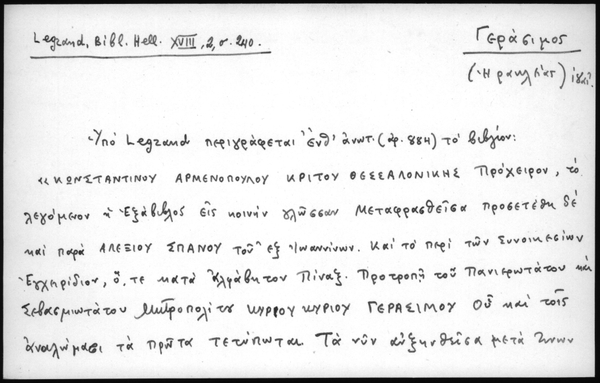 Legrand, Bibl. Hell. XVIII, 2, σ. 240.
Γεράσιμος
(Ἡρακλείας)
Ὑπό Legrand περιγράφεται ἔνθ' ἀνωτ. (ἀρ. 884) τό βιβλίον:
«ΚΩΝΣΤΑΝΤΙΝΟΥ ΑΡΜΕΝΟΠΟΥΛΟΥ ΚΡΙΤΟΥ ΘΕΣΣΑΛΟΝΙΚΗΣ Πρόχειρον, τό
λεγόμενον ἡ Ἑξάβιβλος εἰς κοινήν γλῶσσαν μεταφρασθεῖσα προσετέθη δέ
καί παρά ΑΛΕΞΙΟΥ ΣΠΑΝΟΥ τοῦ ἐξ Ἰωαννίνων. Καί τό περί τῶν Συνοικεσίων
Ἐγχειρίδιον, ὅ, τε κατά Ἀλφάβητον Πίναξ. Προτροπῇ τοῦ Πανιερωτάτου καί
Σεβασμιωτάτου Μητροπολίτου ΚΥΡΡΟΥ ΚΥΡΙΟΥ ΓΕΡΑΣΙΜΟΥ Οὗ καί τοῖς
ἀναλώμασι τά πρῶτα τετύπωται. Τά νῦν αὐξηνθεῖσα μετά